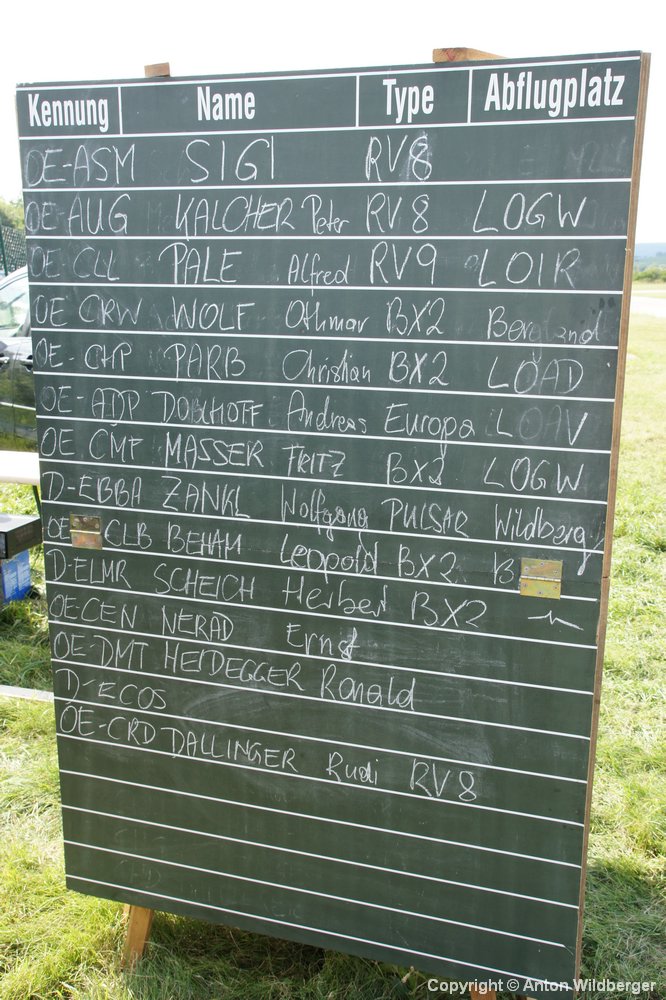 Kennung Name Type Abflugplatz
OE-ASM SIGI RV8
OE-AUG KALCHER Peter RV8 LOGW
OE CLL PALE Alfred RV9 LOIR
OE CRW WOLF Othmar BX2 Bergland
OE-CHP PARB Christian BX2 LOAD
OE-ADP DOBLHOFF Andreas Europa LOAV
OE CMF MASSER FRITZ BX2 LOGW
D-EBBA ZANKL Wolfgang PULSAR Wildberg
OE CLB BEHAM Leopold BX2 B
D-ELMR SCHEICH Herbert BX2
OE-CEN NERAD Ernst
OE-DMT HEIDEGGER Ronald
D-ECOS
OE-CRD DALLINGER Rudi RV8
Copyright © Anton Wildberger